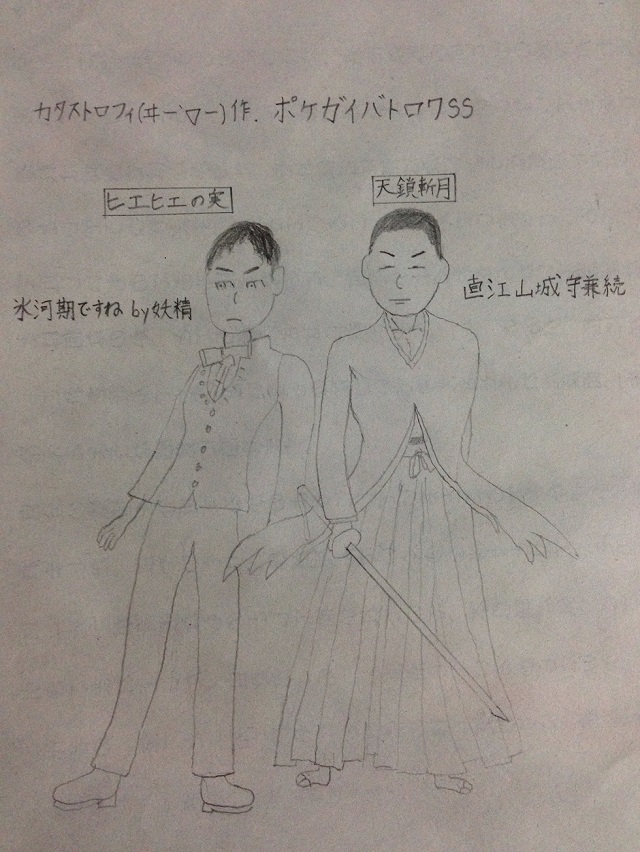 カタストロフィ(ヰ－`ワー)作. ポケガイバトロワSS
天鎖斬月
ヒエヒエの実
氷河期ですね by妖精
直江山城守兼続